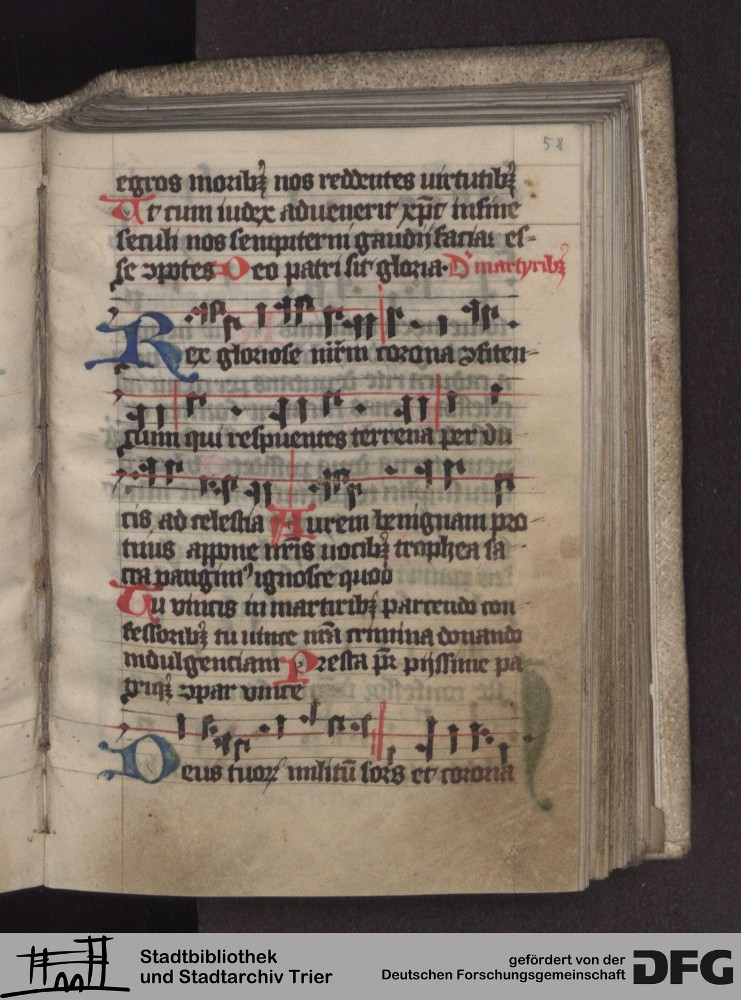 58
egros moribꝫ nos reddentes uirtutibꝫ
Ut cum iudex aduenerit xp̄c in fine
seculi nos sempiterni gaudii faciat es-
se ꝯpotes Deo patri sit gloria. D' martyribꝫ
Rex gloriose mr̄m corona ꝯfiten-
cium qui respuentes terrena per du
cis ad celestia Aurem benignam pro
tinus appone nr̄is uocibꝫ trophea sa
cra pangim' ignosce quod
Tu vincis in martiribꝫ parcendo con
fessoribꝫ tu uince nr̄a crimina donando
indulgenciam Presta pr̄ pijssime pa
triqꝫ ꝯpar vnice
Deus tuoꝝ militū sors et corona
Stadtbibliothek
und Stadtarchiv Trier
gefördert von der
Deutschen Forschungsgemeinschaft
DFG